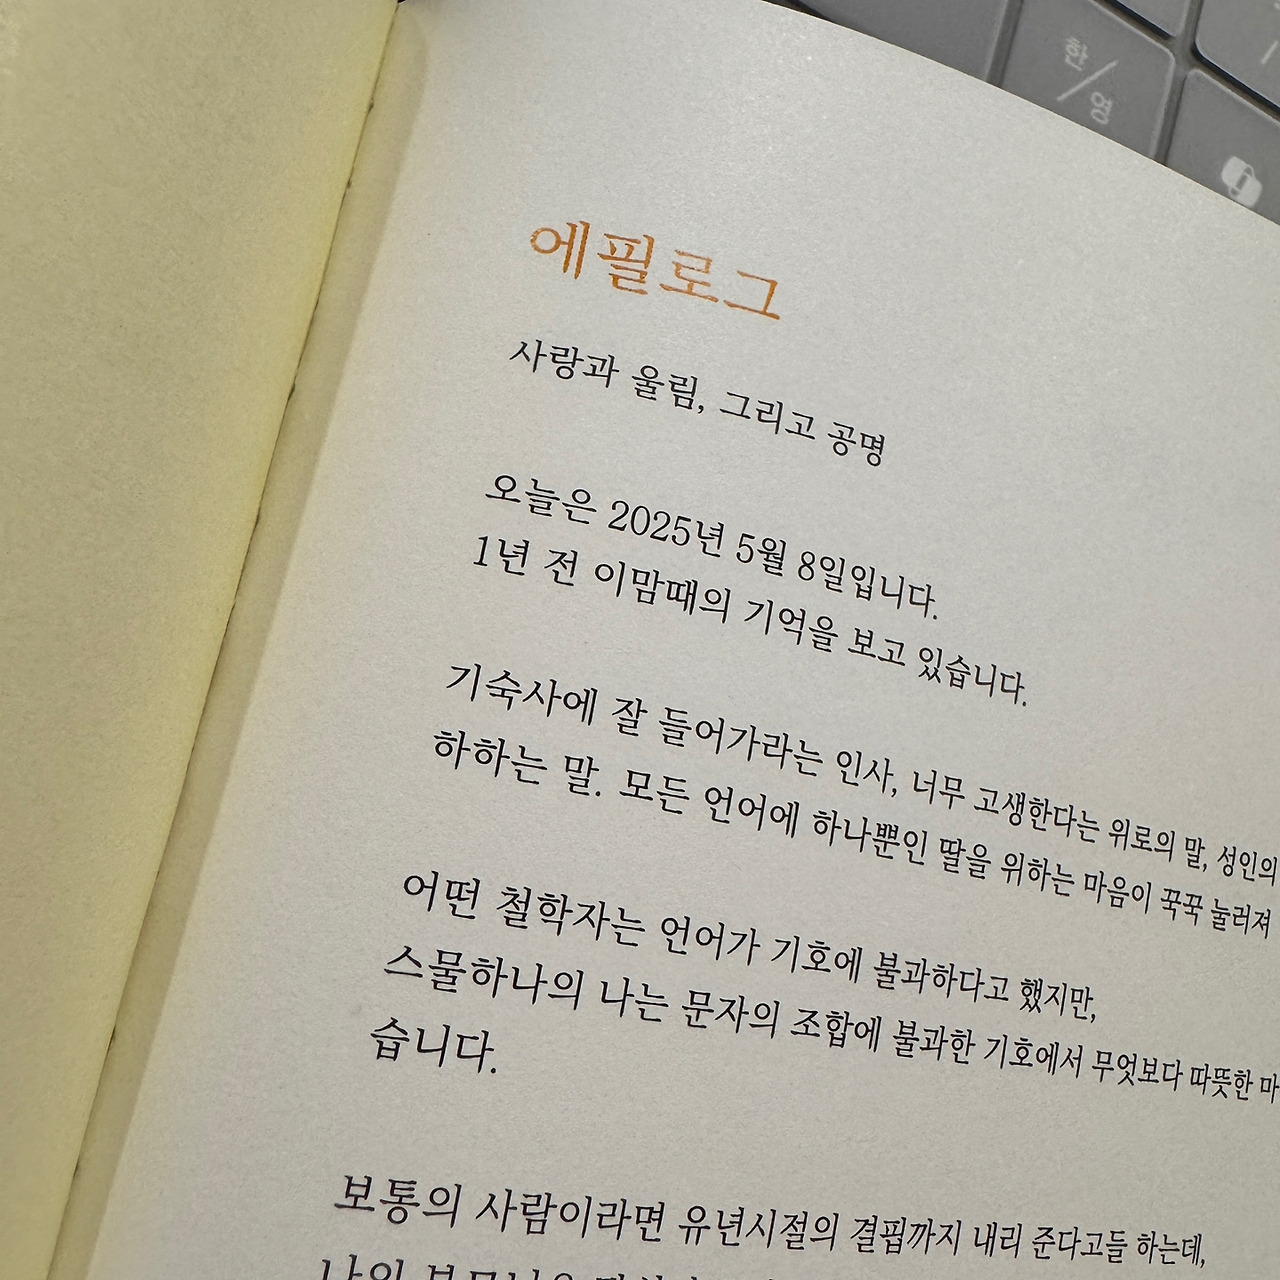 한/영
에필로그
사랑과 울림, 그리고 공명
오늘은 2025년 5월 8일입니다.
1년 전 이맘때의 기억을 보고 있습니다.
기숙사에 잘 들어가라는 인사, 너무 고생한다는 위로의 말, 성인의
하하는 말. 모든 언어에 하나뿐인 딸을 위하는 마음이 꾹꾹 눌러져
어떤 철학자는 언어가 기호에 불과하다고 했지만,
스물하나의 나는 문자의 조합에 불과한 기호에서 무엇보다 따뜻한 마
습니다.
보통의 사람이라면 유년시절의 결핍까지 내리 준다고들 하는데,